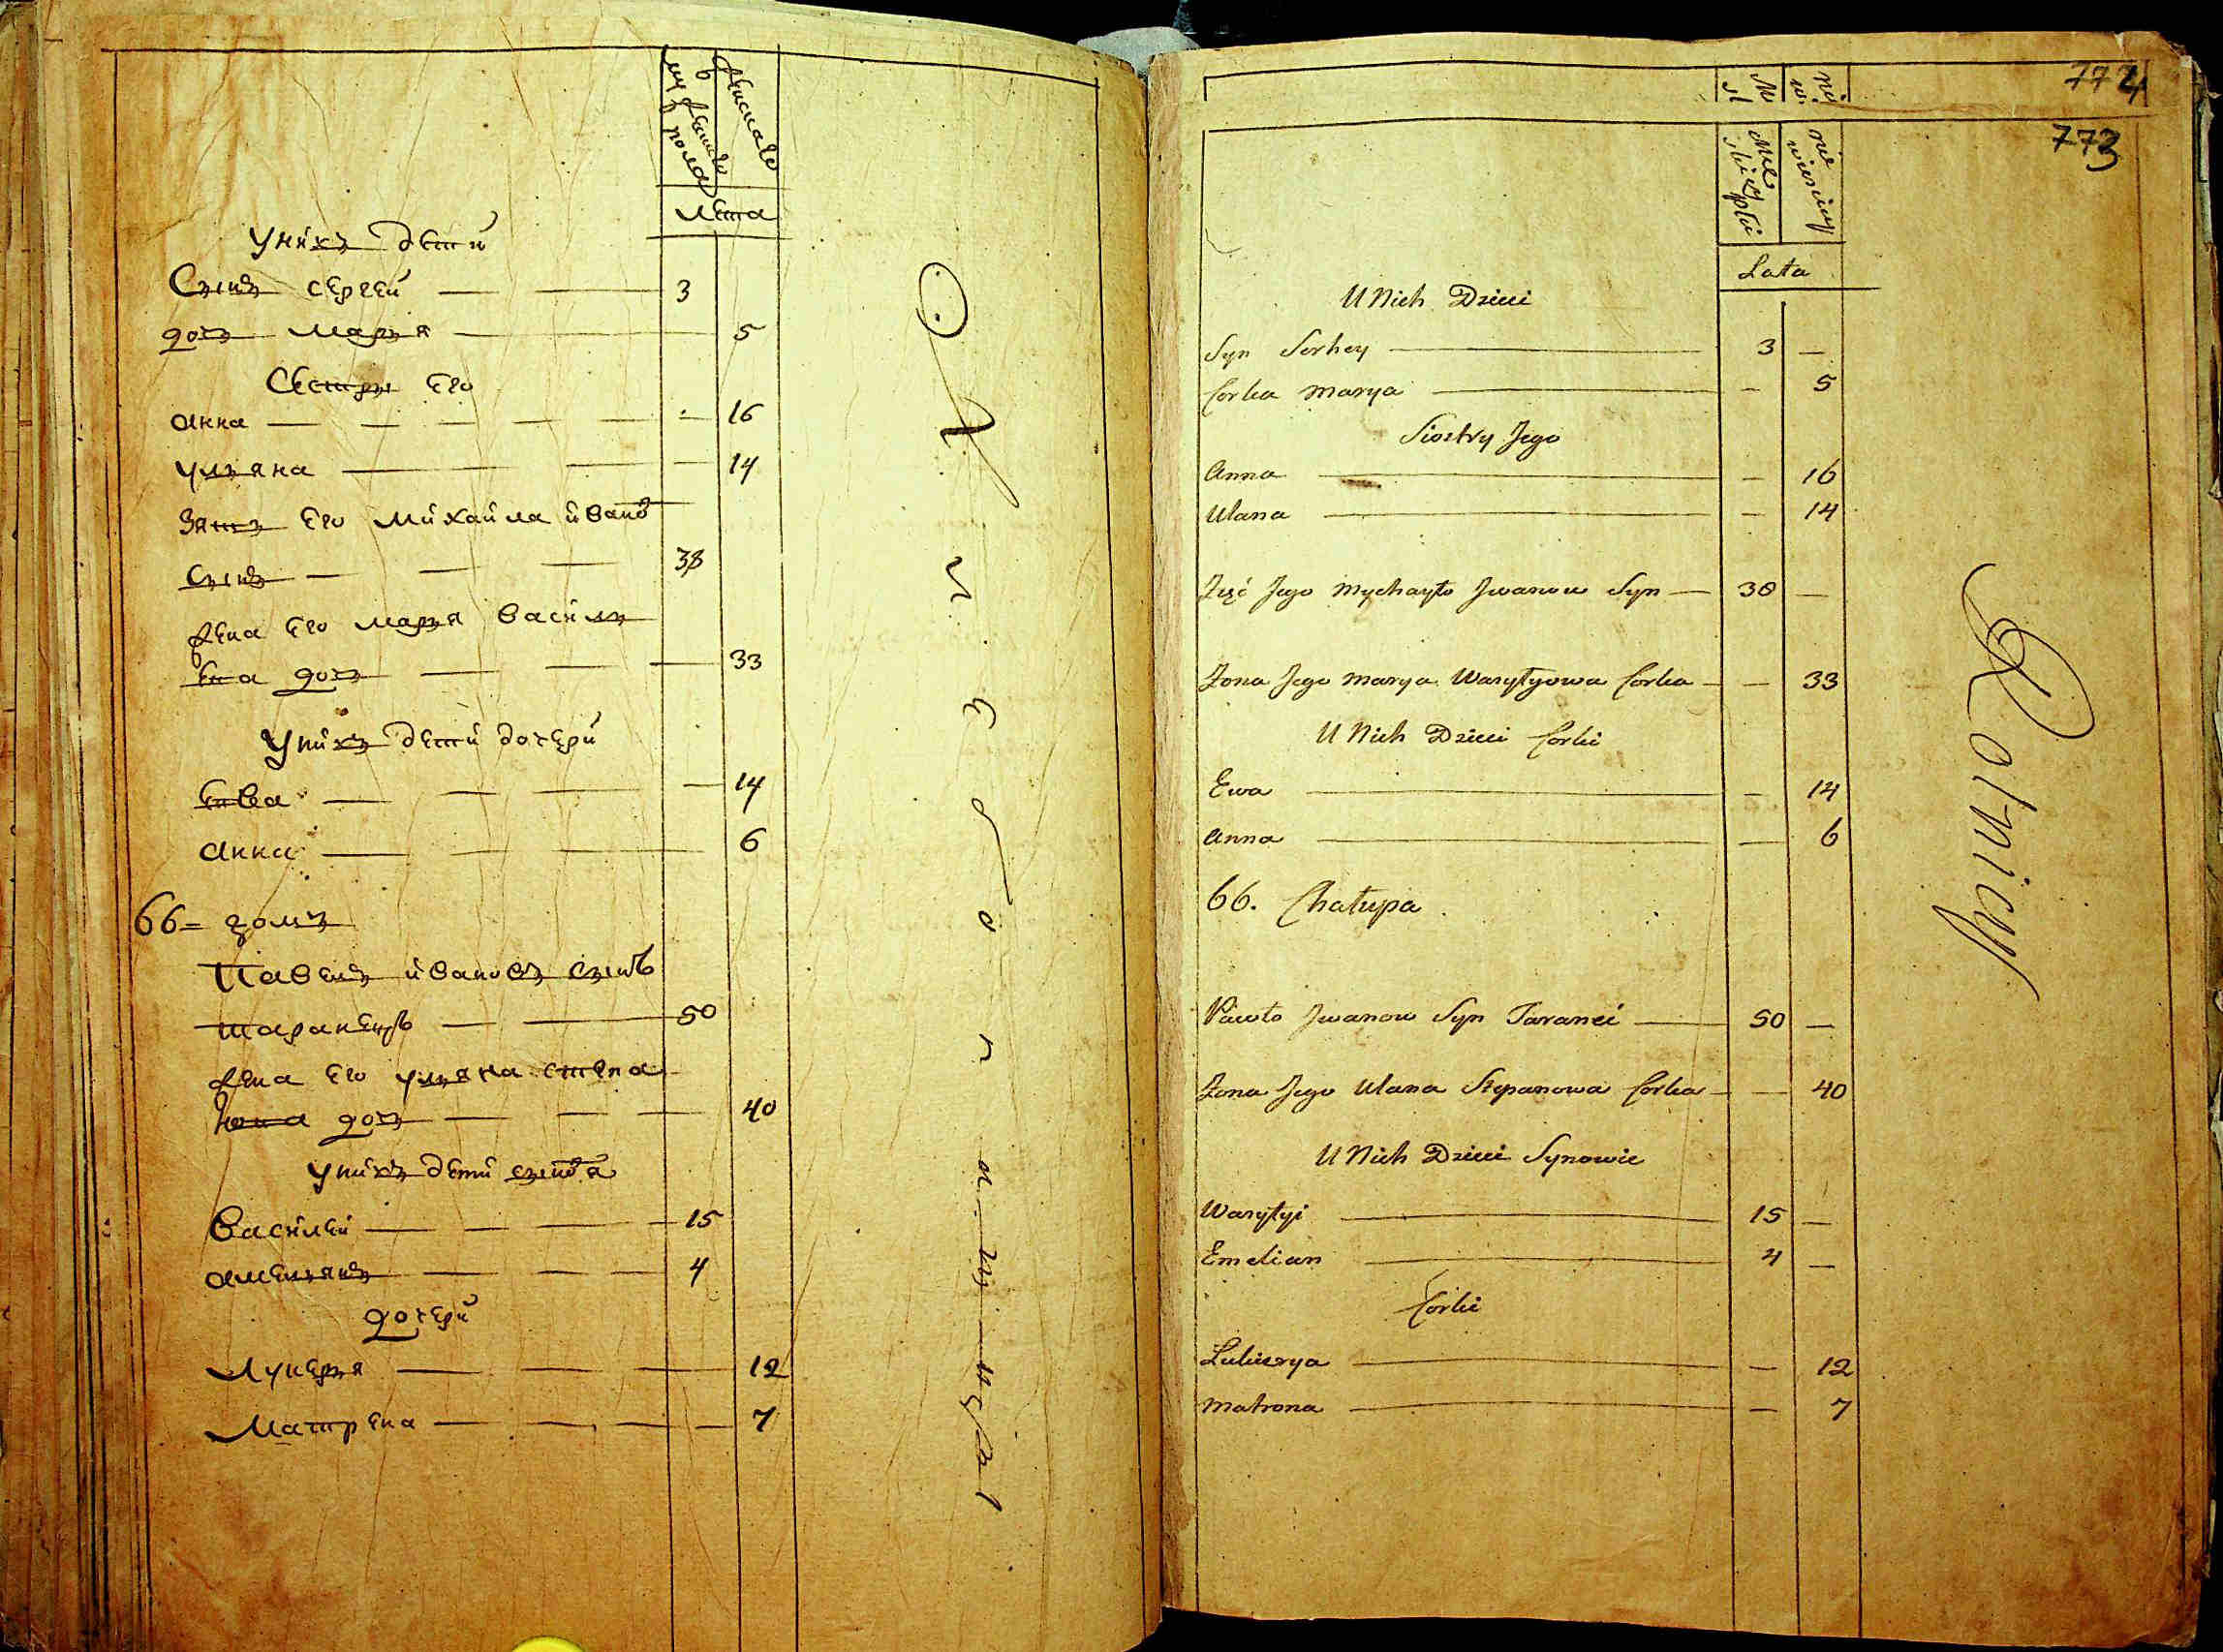 Лѣта
У нихъ дѣти
Сынъ Сергей — 3
дочь Марья — 5
Сестры его
Анна — 16
Ульяна — 14
Зять его Михайла Ивановъ
сынъ — 38
жена его Марья Василь
ева дочь — 33
У нихъ дѣти дочери
Евва — 14
Анна — 6
66 = домъ
Павелъ Ивановъ сынъ
Таранецъ — 50
жена его Ульяна Степа
нова дочь — 40
У нихъ дѣти сыновья
Василей — 15
Амельянъ — 4
дочери
Лукерья — 12
Матрена — 7
774
773
Męskiey płci
niewieściey
Lata
U Nich Dzieci
Syn Serhey — 3 —
Corka Marya — 5
Siostry Jego
Anna — 16
Ulana — 14
Zięć Jego Mychayło Jwanow Syn — 38 —
Żona Jego Marya Wasylyowa Corka — 33
U Nich Dzieci Corki
Ewa — 14
Anna — 6
66. Chałupa
Pawło Jwanow Syn Taraneć — 50 —
Żona Jego Ulana Stepanowa Corka — 40
U Nich Dzieci Synowie
Wasylyi — 15 —
Emelian — 4 —
Corki
Lukierya — 12
Matrona — 7
Rolnicy